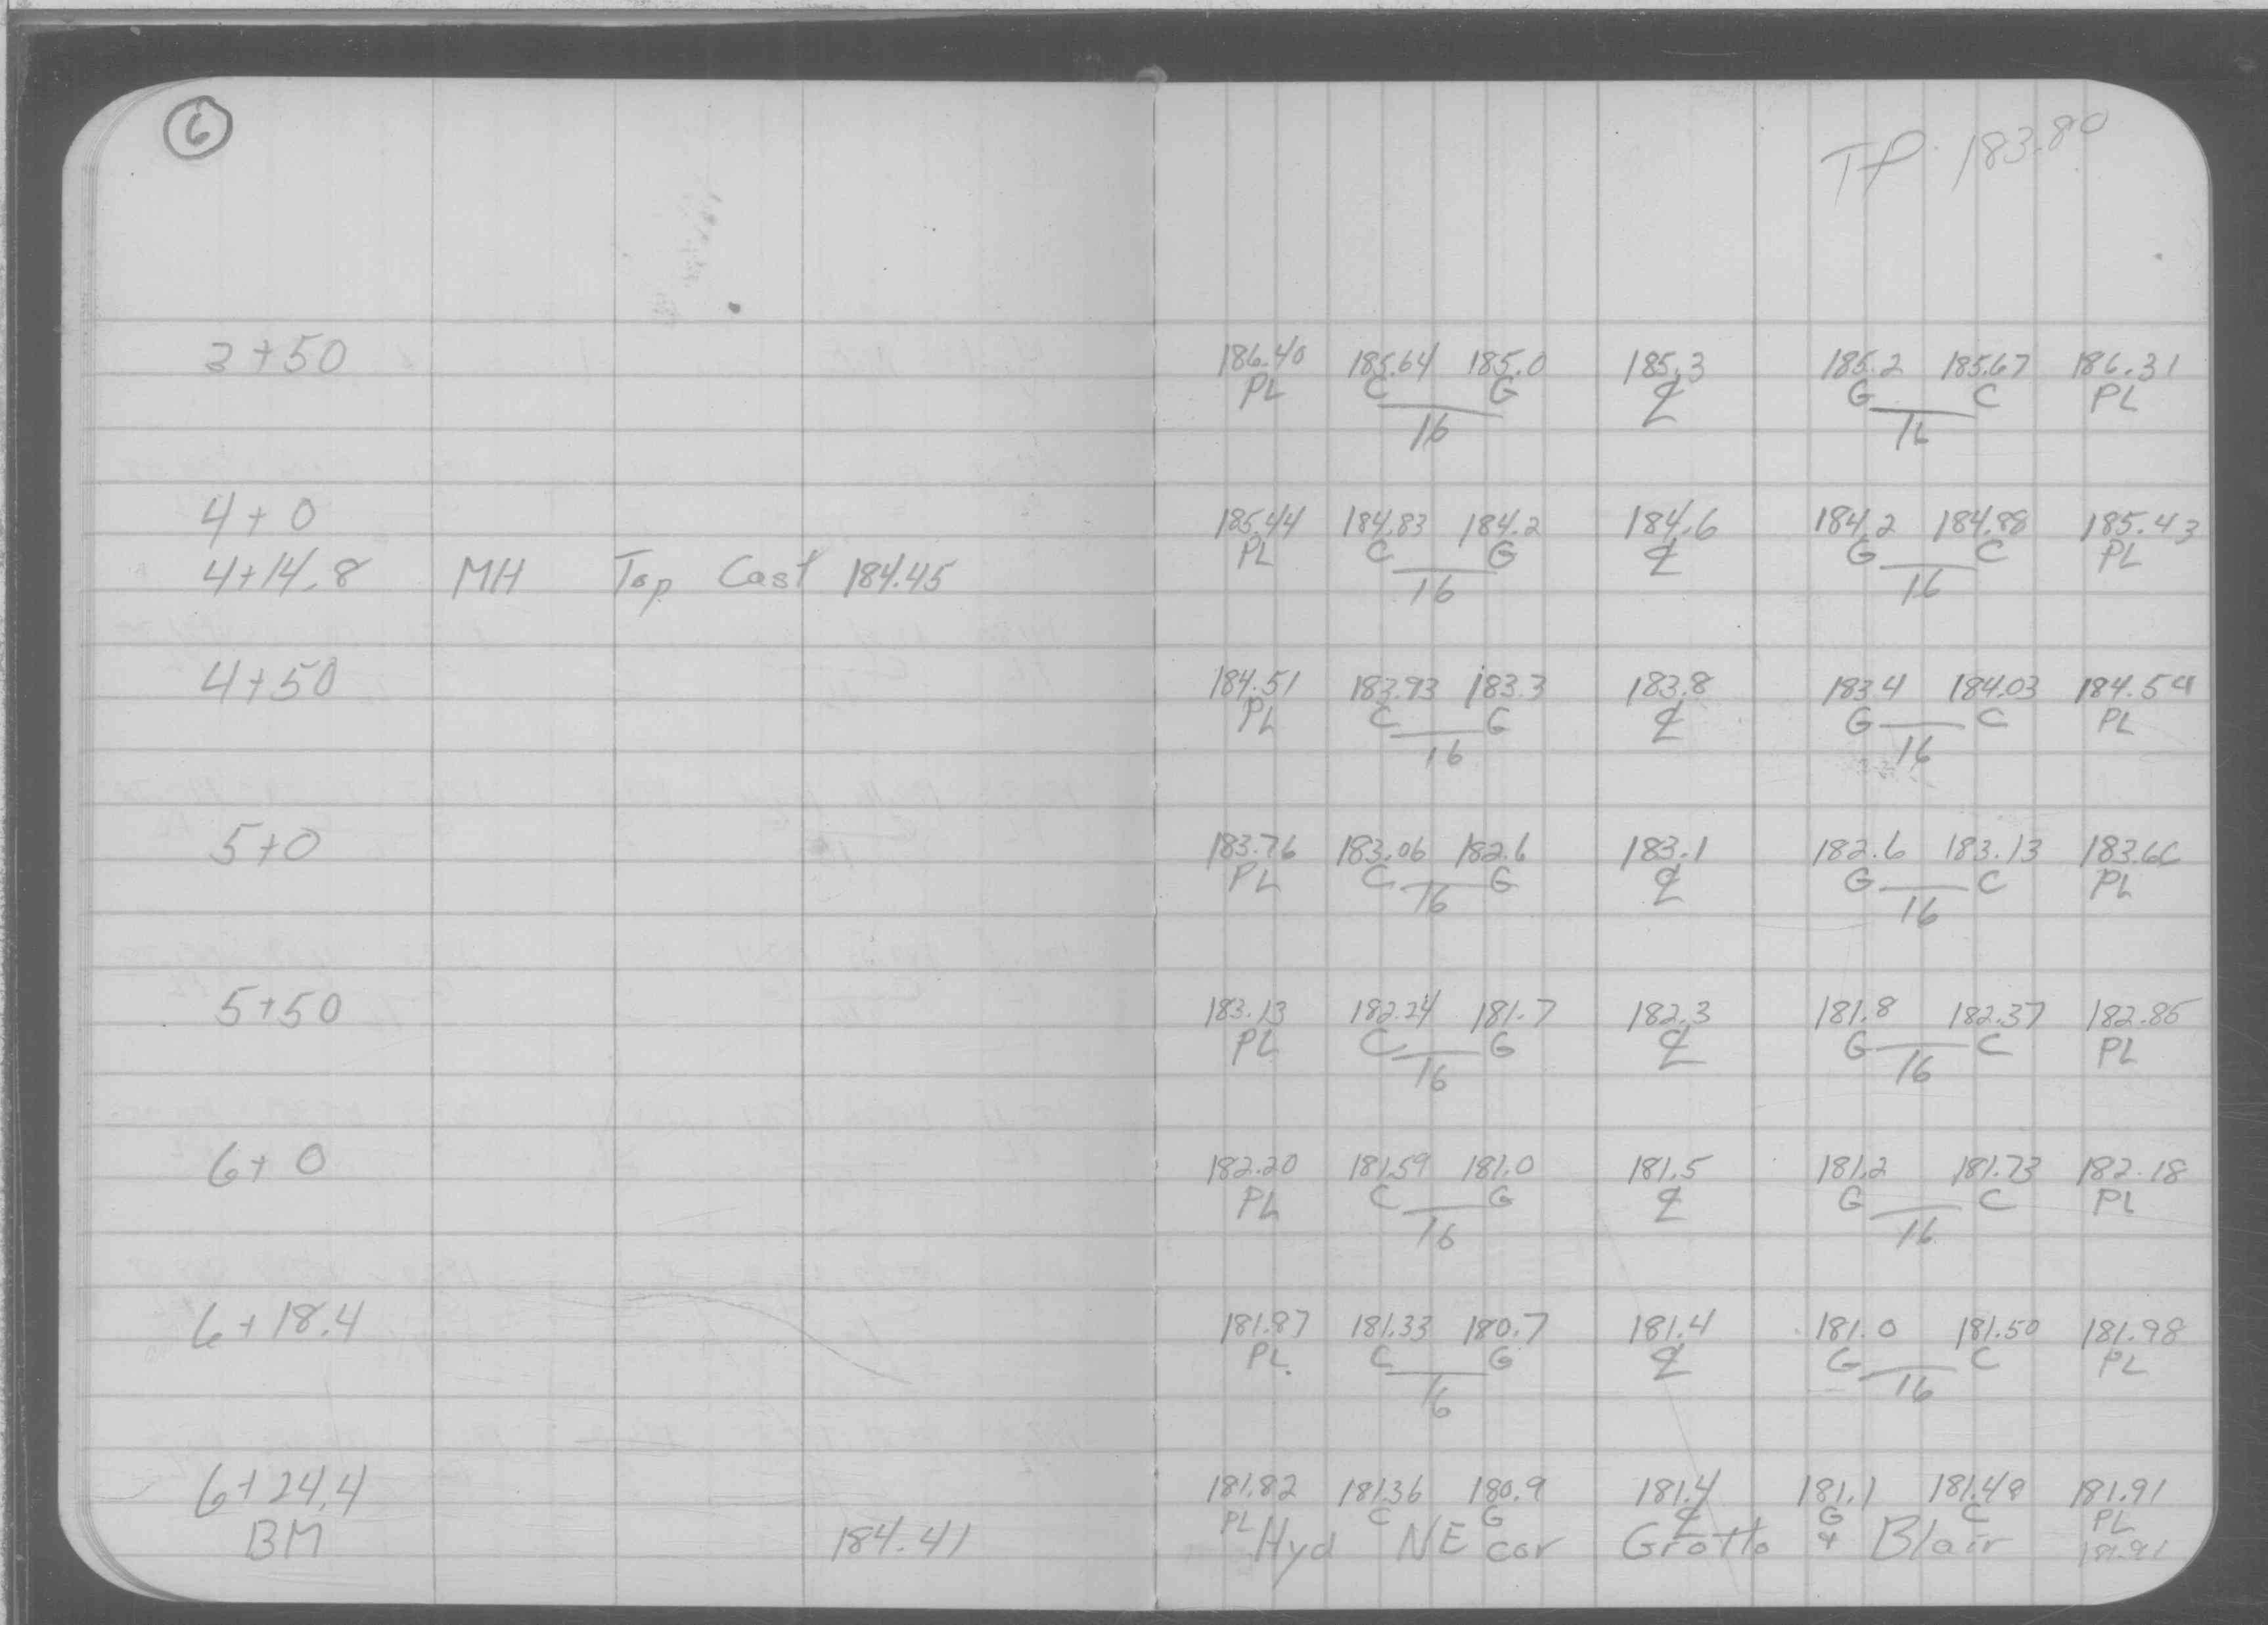 6
TP 183.80
3+50 186.40 185.64 185.0 185.3 185.2 185.67 186.31
PL C G ℄ G C PL
16 16
4+0 185.44 184.83 184.2 184.6 184.2 184.88 185.43
4+14.8 MH Top Cast 184.45 PL C G ℄ G C PL
16 16
4+50 184.51 183.93 183.3 183.8 183.4 184.03 184.54
PL C G ℄ G C PL
16 16
5+0 183.76 183.06 182.6 183.1 182.6 183.13
PL C G ℄ G C PL
16 16
5+50 183.13 182.24 181.7 182.3 181.8 182.37 182.85
PL C G ℄ G C PL
16 16
6+0 182.20 181.59 181.0 181.5 181.2 181.73 182.18
PL C G ℄ G C PL
16 16
6+18.4 181.87 181.33 180.7 181.4 181.0 181.50 181.98
PL C G ℄ G C PL
16 16
6+24.4 181.82 181.36 180.9 181.4 181.1 181.49 181.91
PL C G ℄ G C PL
BM 184.41 Hyd NE cor Grotto & Blair 181.91